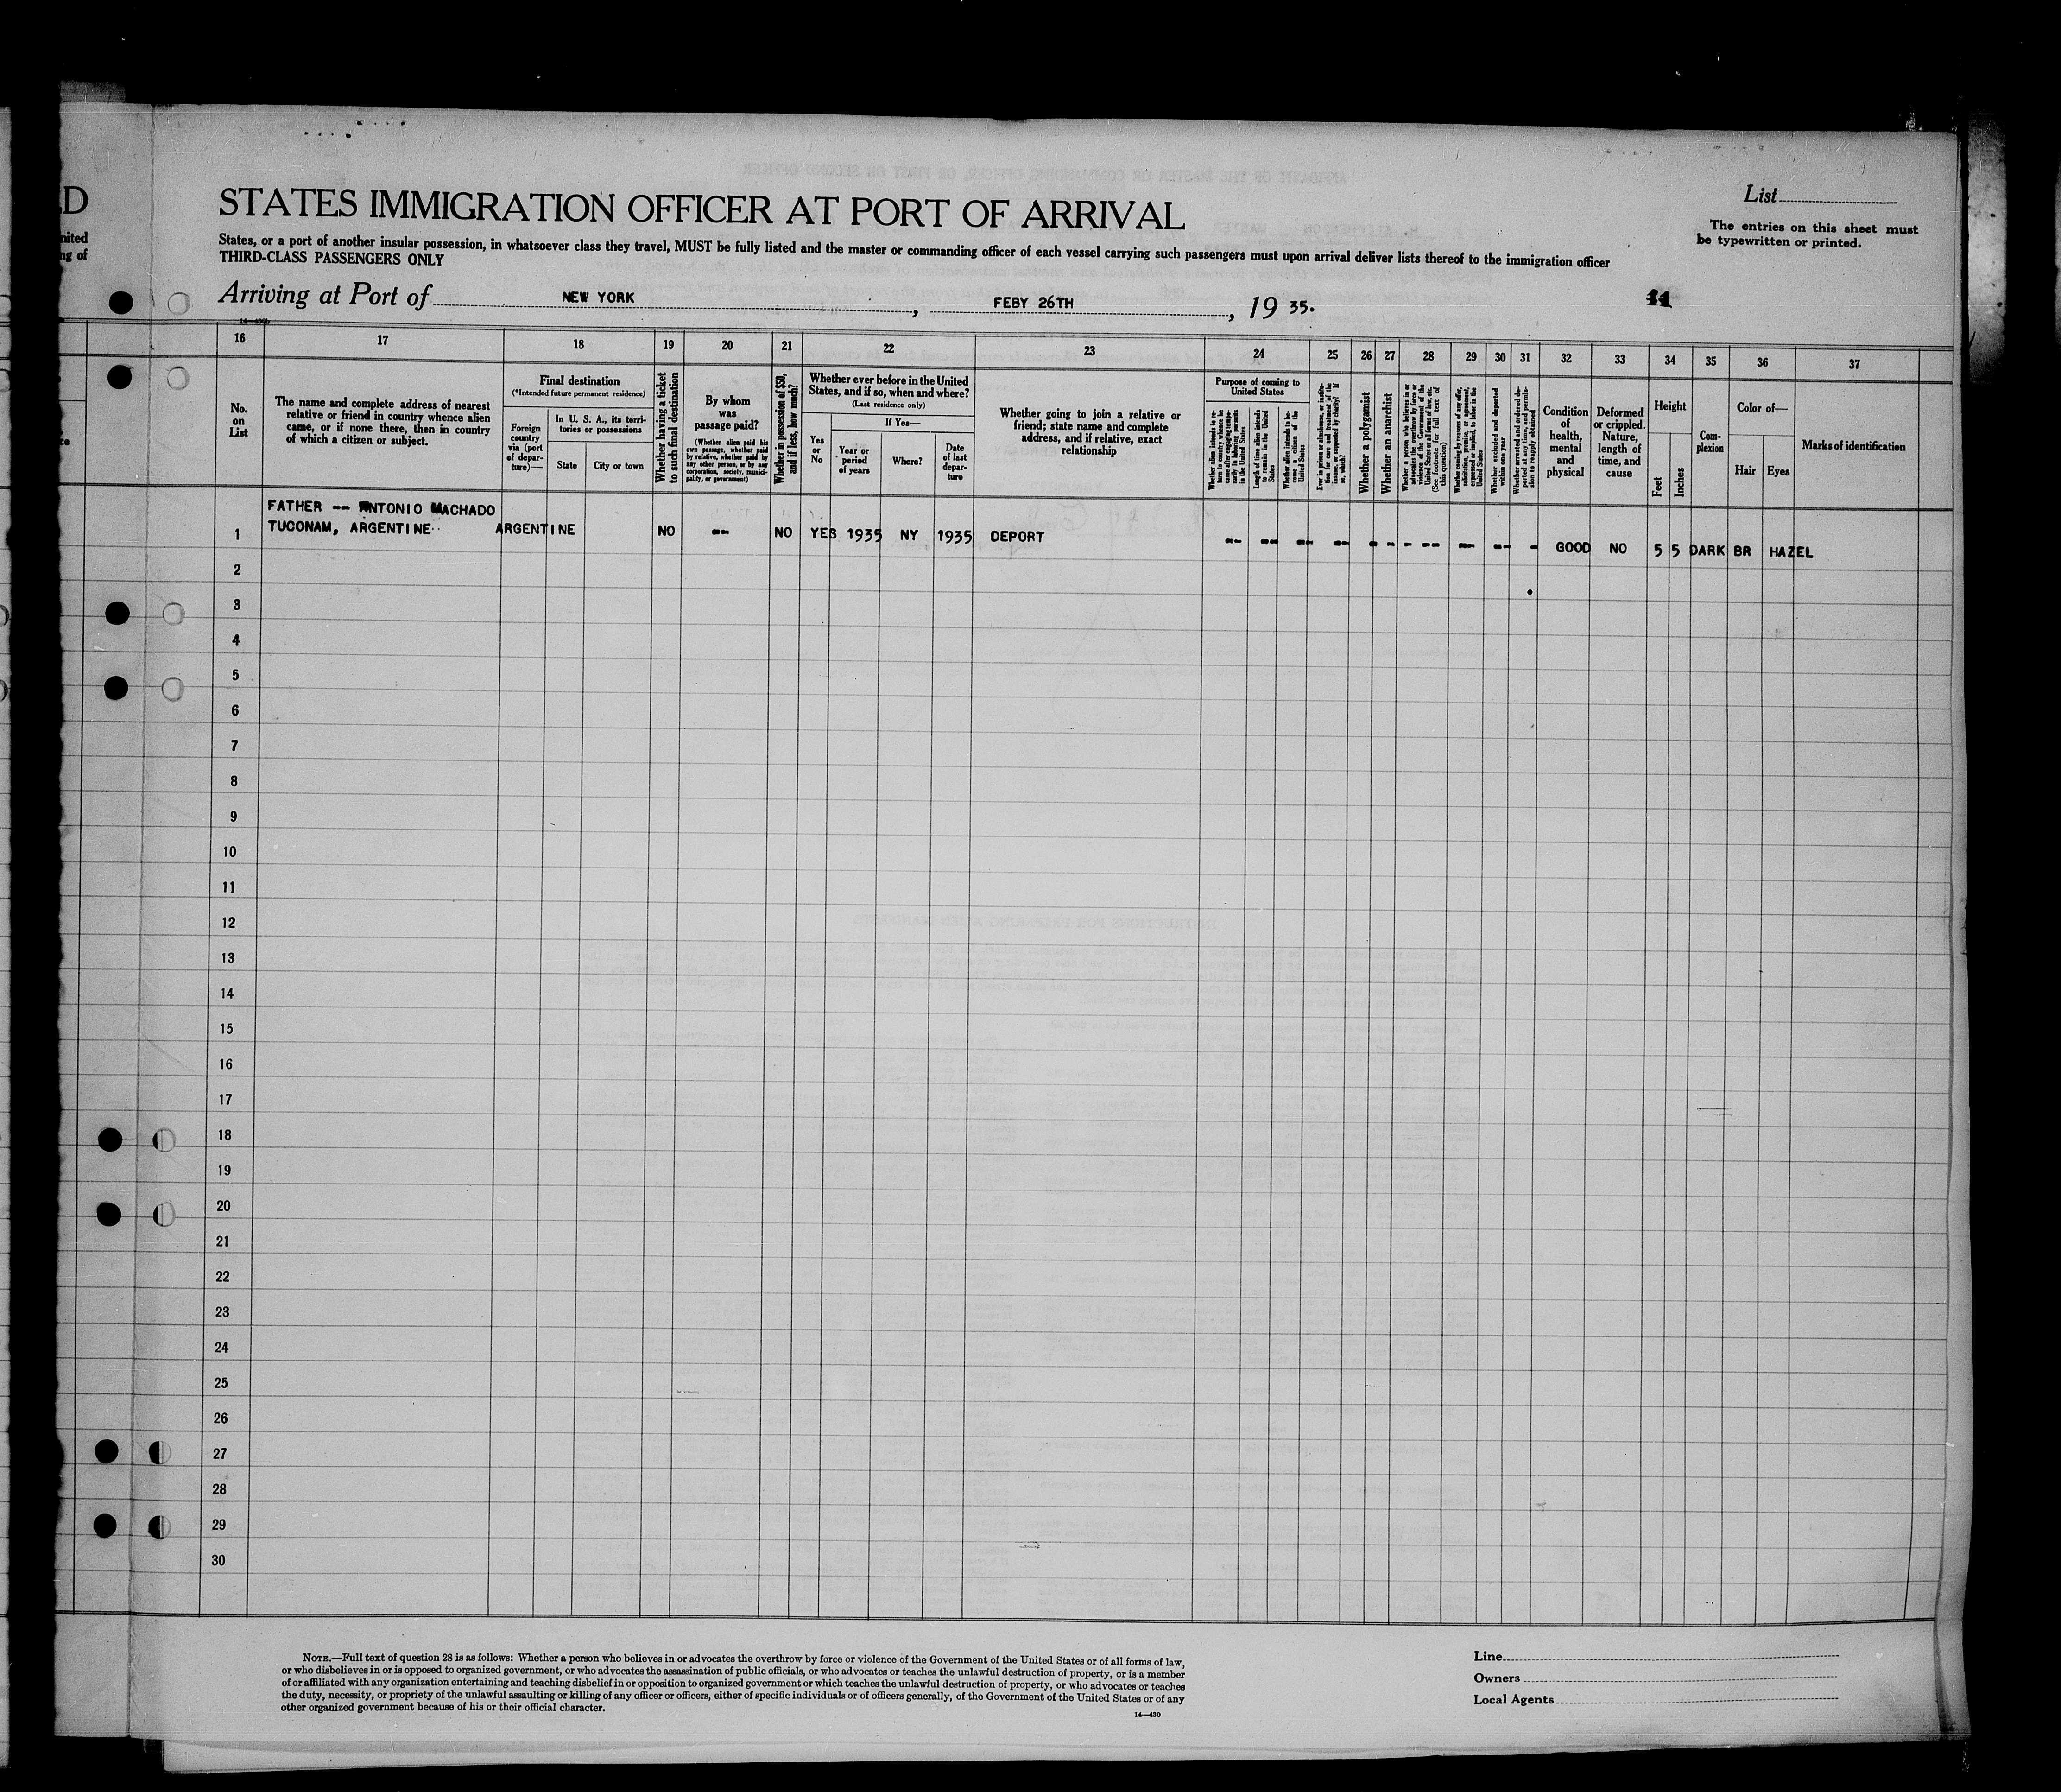 D
STATES IMMIGRATION OFFICER AT PORT OF ARRIVAL
List
The entries on this sheet must
be typewritten or printed.
nited
ng of
States, or a port of another insular possession, in whatsoever class they travel, MUST be fully listed and the master or commanding officer of each vessel carrying such passengers must upon arrival deliver lists thereof to the immigration officer
THIRD-CLASS PASSENGERS ONLY
Arriving at Port of NEW YORK, FEBY 26TH, 19 35.
16 17 18 19 20 21 22 23 24 25 26 27 28 29 30 31 32 33 34 35 36 37
No.
on
List
The name and complete address of nearest
relative or friend in country whence alien
came, or if none there, then in country
of which a citizen or subject.
Final destination
(*Intended future permanent residence)
Foreign
country
via (port
of depar-
ture)—
In U. S. A., its terri-
tories or possessions
State
City or town
Whether having a ticket
to such final destination
By whom
was
passage paid?
(Whether alien paid his
own passage, whether paid
by relative, whether paid by
any other person, or by any
corporation, society, munici-
pality, or government)
Whether in possession of $50,
and if less, how much?
Whether ever before in the United
States, and if so, when and where?
(Last residence only)
Yes
or
No
If Yes—
Year or
period
of years
Where?
Date
of last
depar-
ture
Whether going to join a relative or
friend; state name and complete
address, and if relative, exact
relationship
Purpose of coming to
United States
Whether alien intends to re-
turn to country whence he
came after engaging tempo-
rarily in laboring pursuits
in the United States
Length of time alien intends
to remain in the United
States
Whether alien intends to be-
come a citizen of the
United States
Ever in prison or almshouse, or institu-
tion for care and treatment of the
insane, or supported by charity? If
so, which?
Whether a polygamist
Whether an anarchist
Whether a person who believes in or
advocates the overthrow by force or
violence of the Government of the
United States or all forms of law, etc.
(See footnote for full text of
this question)
Whether coming by reason of any offer,
solicitation, promise, or agreement,
expressed or implied, to labor in the
United States
Whether excluded and deported
within one year
Whether arrested and ordered de-
ported at any time, and permis-
sion to reapply obtained
Condition
of
health,
mental
and
physical
Deformed
or crippled.
Nature,
length of
time, and
cause
Height
Feet
Inches
Com-
plexion
Color of—
Hair
Eyes
Marks of identification
FATHER -- ANTONIO MACHADO
1 TUCONAM, ARGENTINE ARGENTINE NO -- NO YES 1935 NY 1935 DEPORT -- -- -- -- - -- - -- -- -- - GOOD NO 5 5 DARK BR HAZEL
2
3
4
5
6
7
8
9
10
11
12
13
14
15
16
17
18
19
20
21
22
23
24
25
26
27
28
29
30
NOTE.—Full text of question 28 is as follows: Whether a person who believes in or advocates the overthrow by force or violence of the Government of the United States or of all forms of law,
or who disbelieves in or is opposed to organized government, or who advocates the assassination of public officials, or who advocates or teaches the unlawful destruction of property, or is a member
of or affiliated with any organization entertaining and teaching disbelief in or opposition to organized government or which teaches the unlawful destruction of property, or who advocates or teaches
the duty, necessity, or propriety of the unlawful assaulting or killing of any officer or officers, either of specific individuals or of officers generally, of the Government of the United States or of any
other organized government because of his or their official character.
14—430
Line
Owners
Local Agents